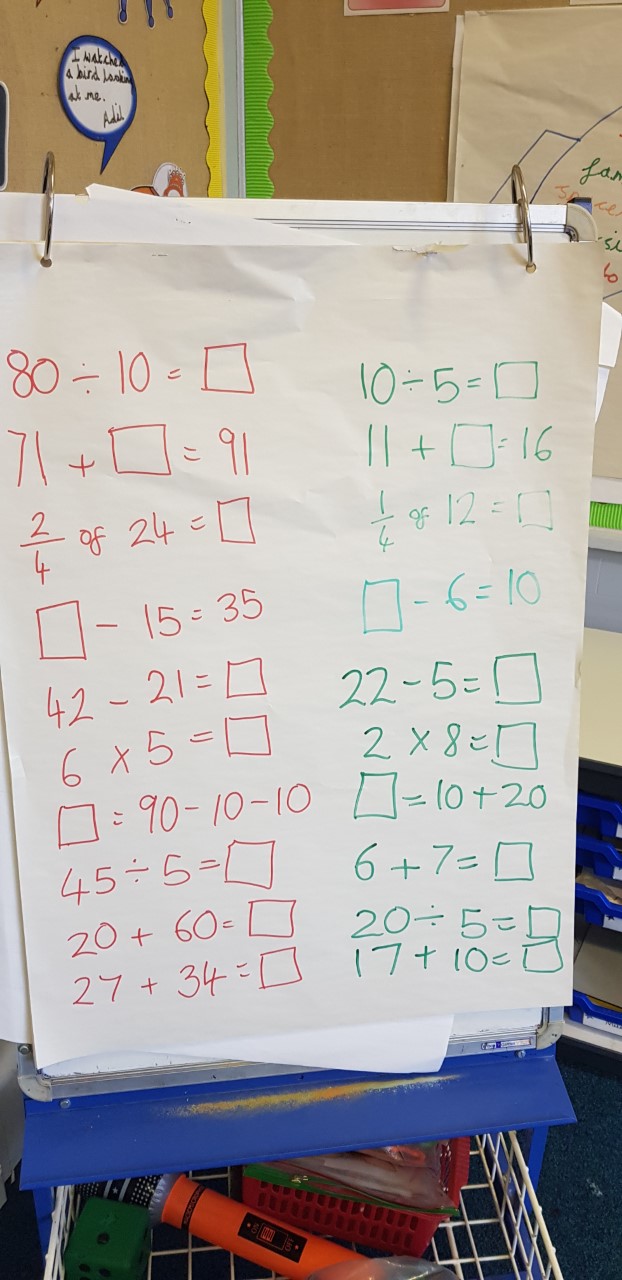 I watched
a bird looking
at me.
Adil
80 ÷ 10 = □
71 + □ = 91
2/4 of 24 = □
□ - 15 = 35
42 - 21 = □
6 × 5 = □
□ = 90 - 10 - 10
45 ÷ 5 = □
20 + 60 = □
27 + 34 = □
10 ÷ 5 = □
11 + □ = 16
1/4 of 12 = □
□ - 6 = 10
22 - 5 = □
2 × 8 = □
□ = 10 + 20
6 + 7 = □
20 ÷ 5 = □
17 + 10 = □